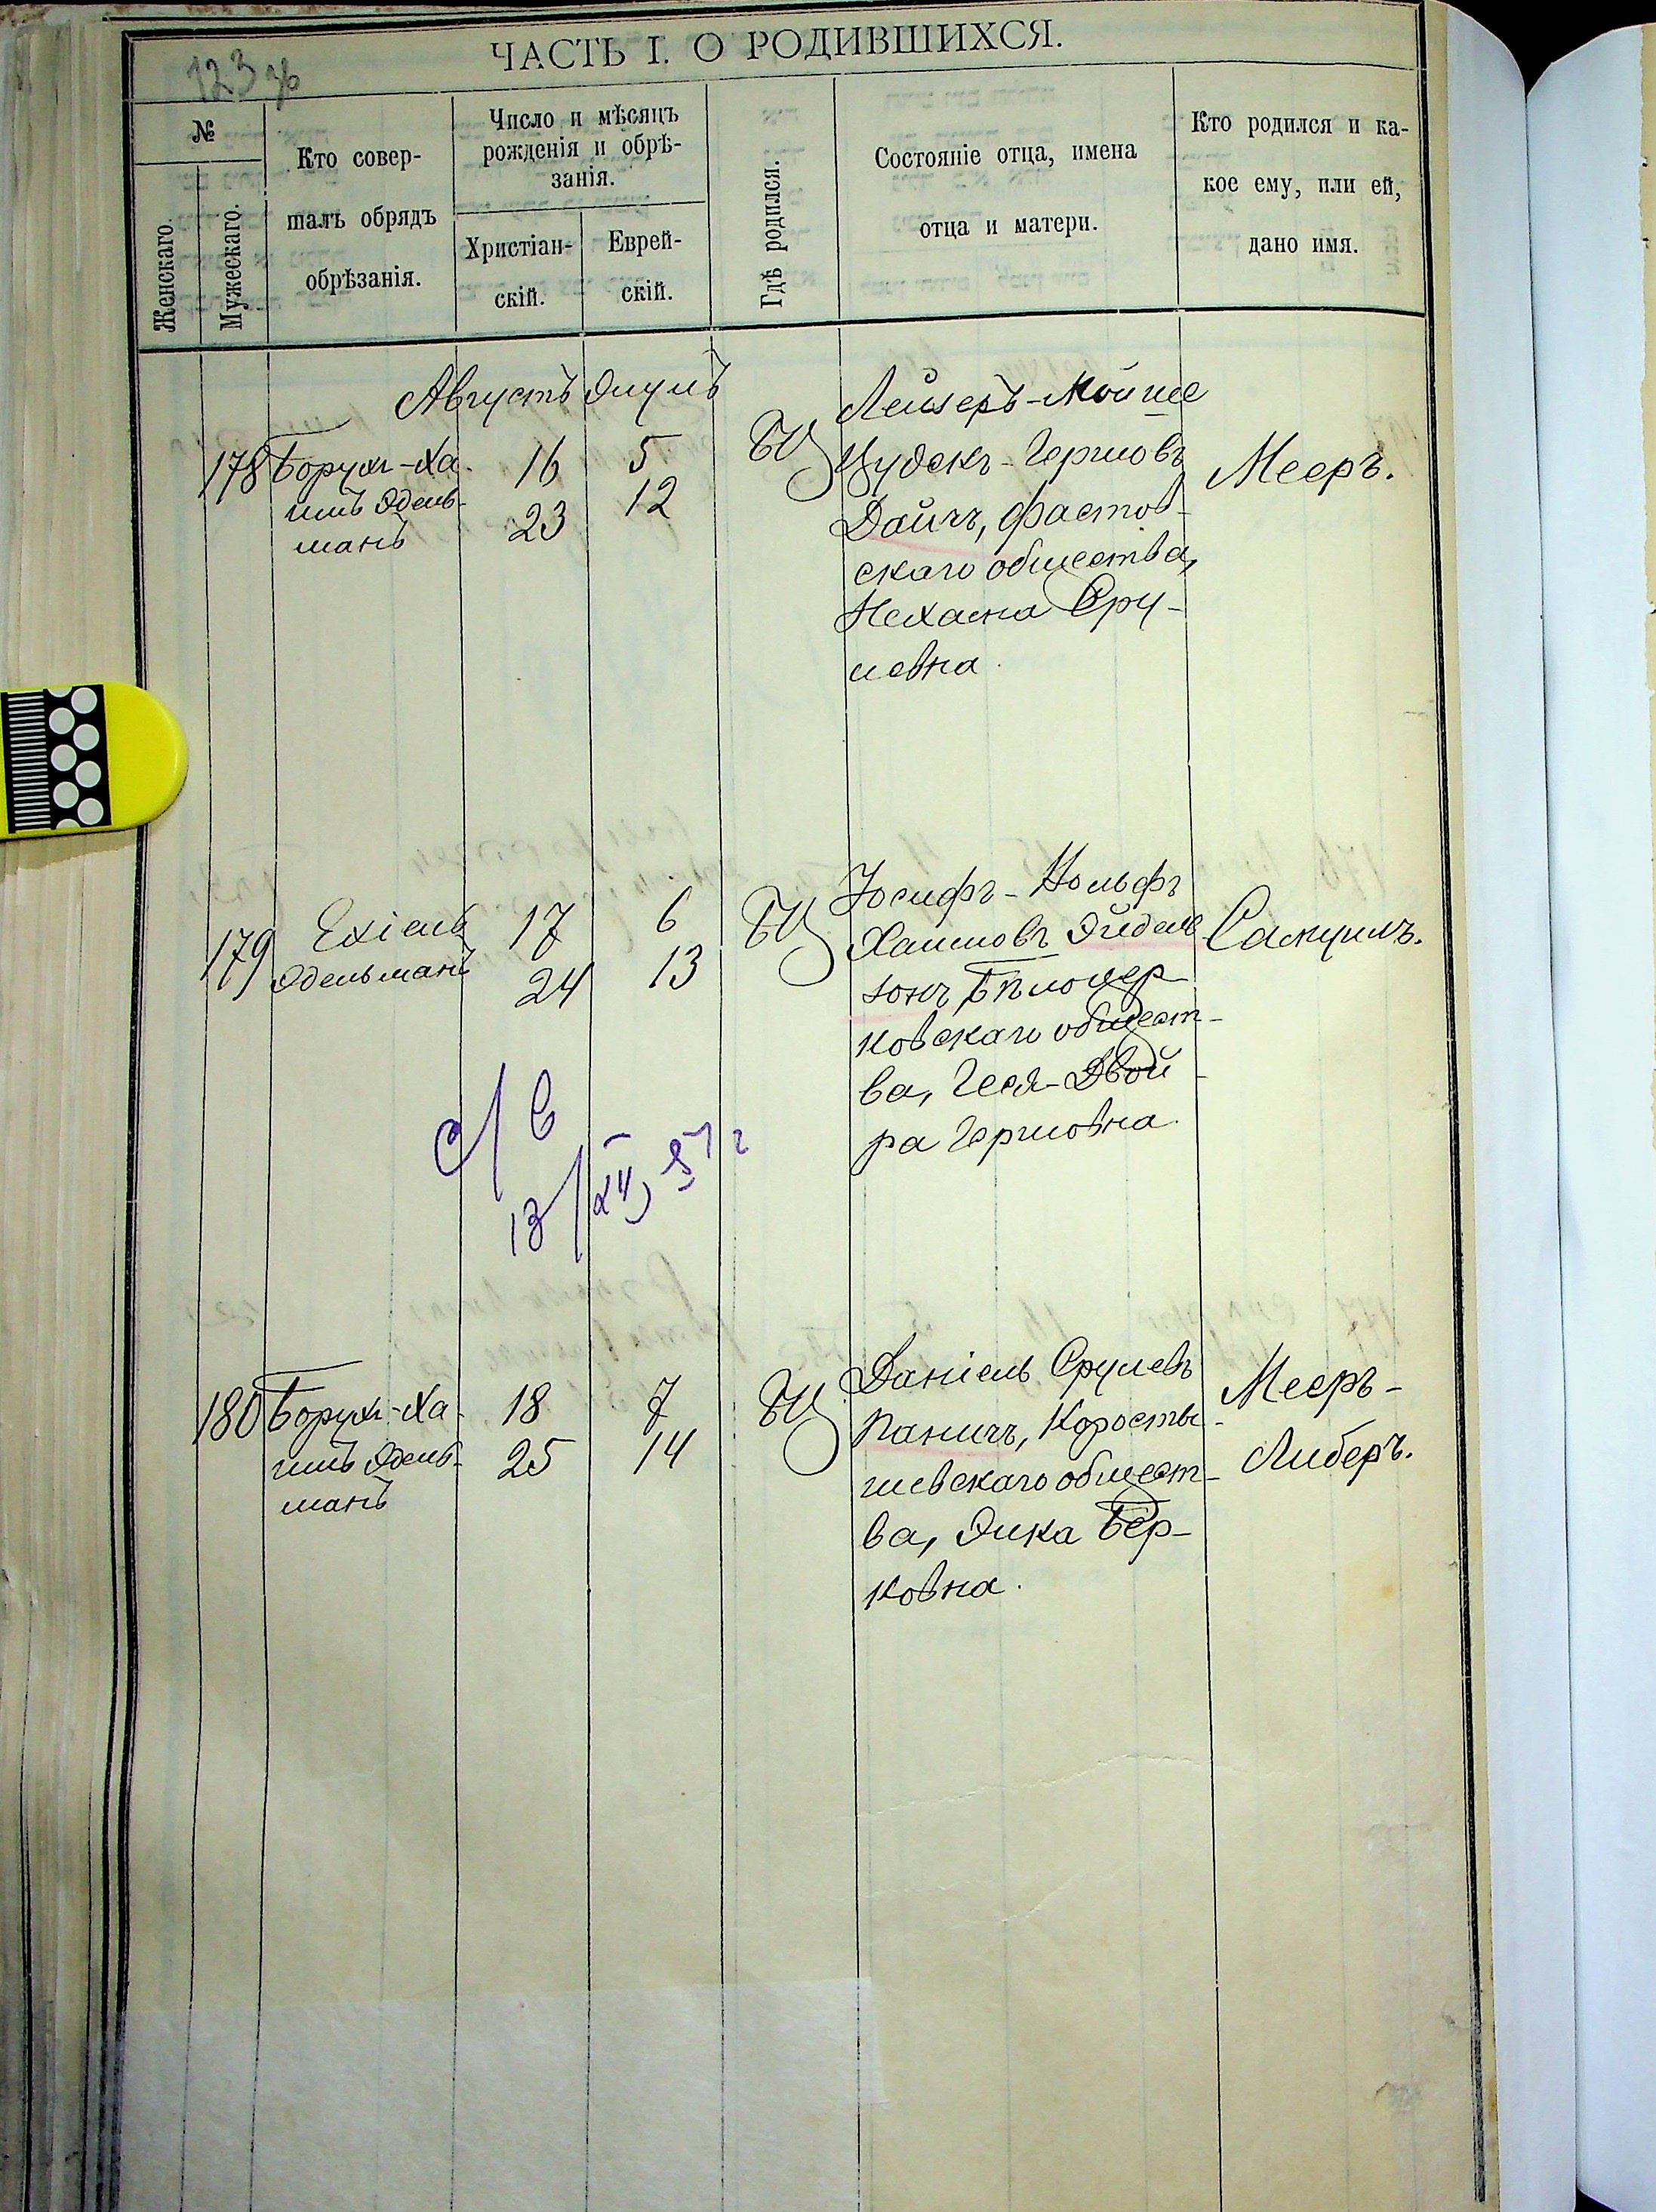 ЧАСТЬ I. О РОДИВШИХСЯ.
123
№
Женскаго.
Мужескаго.
Кто совер-
шалъ обрядъ
обрѣзанія.
Число и мѣсяцъ
рожденія и обрѣ-
занія.
Христіан-
скій.
Еврей-
скій.
Гдѣ родился.
Состояніе отца, имена
отца и матери.
Кто родился и ка-
кое ему, или ей,
дано имя.
Августъ Элулъ
178
Борухъ-Ха-
имъ Эдель-
манъ
16
23
5
12
БЦ
Лейзеръ-Мойше
Цудекъ-Гершовъ
Дайчъ, Фастов-
скаго общества,
Нехама Сру-
левна.
Мееръ.
179
Ехіель
Эдельманъ
17
24
6
13
БЦ
Іосифъ-Вольфъ
Хаимовъ Эйдель
зонъ Бѣлоцер
ковскаго общест-
ва, Геся-Двой-
ра Гершовна.
Самуилъ.
180
Борухъ-Ха-
имъ Эдель-
манъ
18
25
7
14
БЦ
Даніель Срулевъ
Паничъ, Коросты-
шевскаго общест-
ва, Элка Бер-
ковна.
Мееръ-
Либеръ.